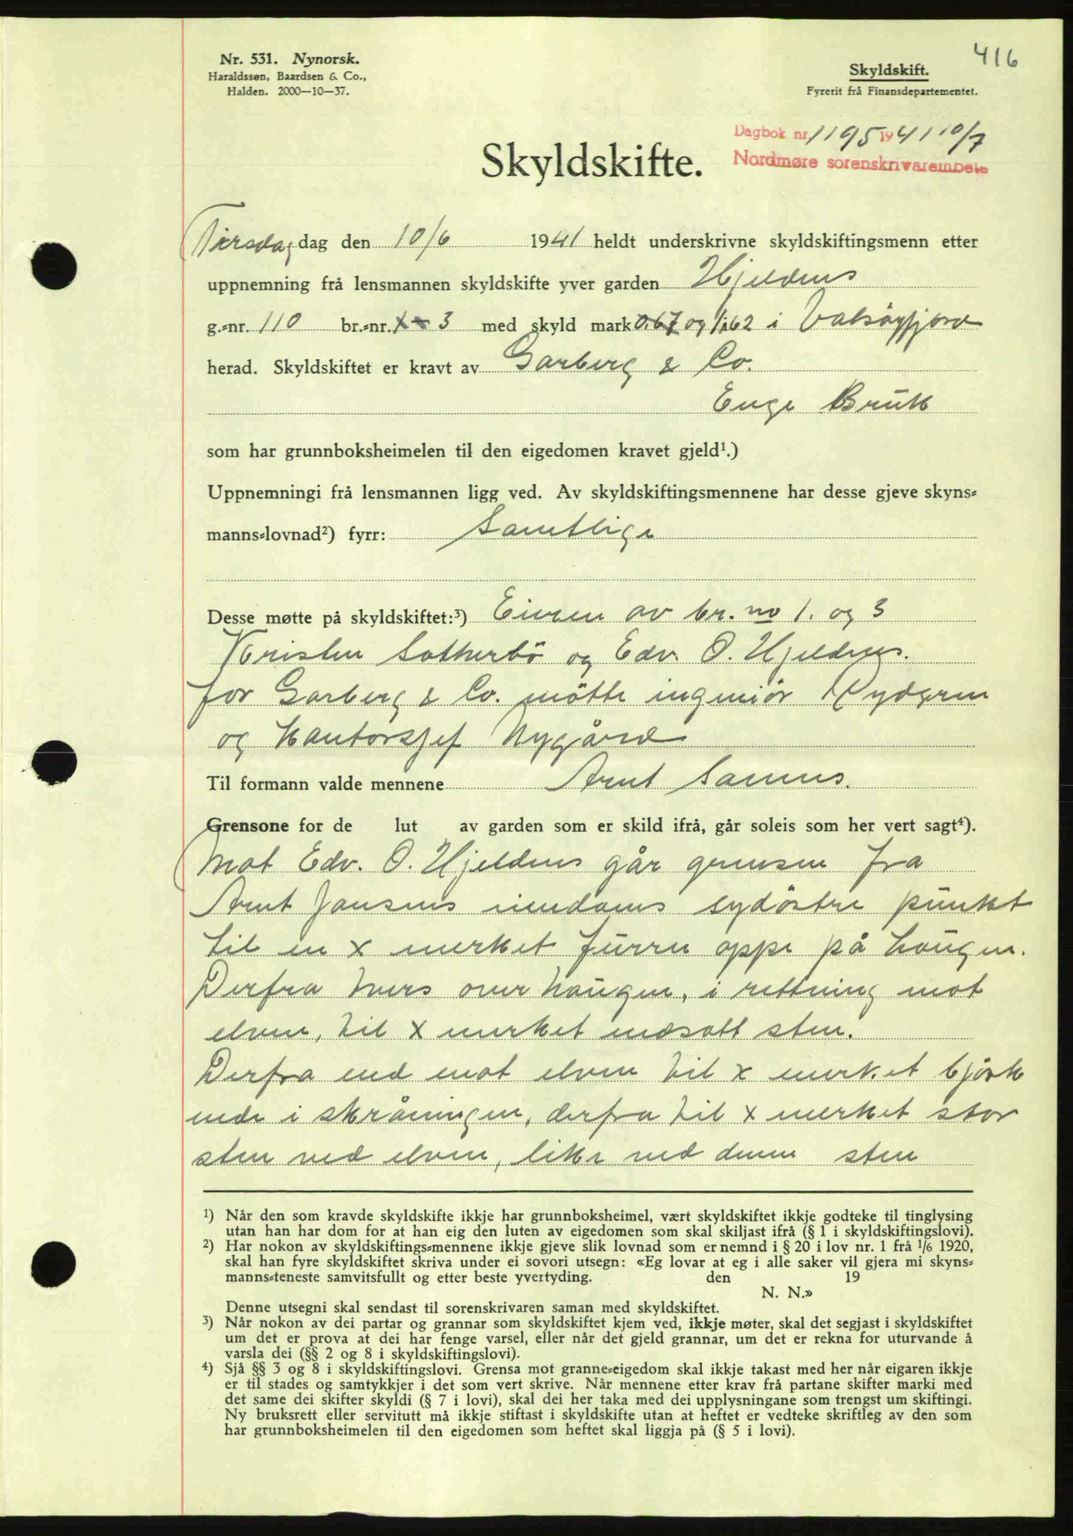 416
Nr. 531. Nynorsk.
Haraldssøn, Baardsen & Co.,
Halden. 2000—10—37.
Skyldskift.
Fyrerit frå Finansdepartementet.
Dagbok nr. 1195 1941 10/7
Nordmøre sorenskrivarembete
Skyldskifte.
Tirsdag dag den 10/6 1941 heldt underskrivne skyldskiftingsmenn etter
uppnemning frå lensmannen skyldskifte yver garden Hjeldnes
g.=nr. 110 br.=nr. 3 med skyld mark 0.67 og 1.62 i Valsøyfjord
herad. Skyldskiftet er kravt av Garberg & Co.
Enge Bruk
som har grunnboksheimelen til den eigedomen kravet gjeld¹.)
Uppnemningi frå lensmannen ligg ved. Av skyldskiftingsmennene har desse gjeve skyns=
manns=lovnad²) fyrr: Samtlige
Desse møtte på skyldskiftet:³) Eieren av br. no 1. og 3
Kristen Sætherbö og Edv. O. Hjeldnes.
for Garberg & Co. mötte ingeniör Rydgren
og kontorsjef Nygård
Til formann valde mennene Arnt
Grensone for de lut av garden som er skild ifrå, går soleis som her vert sagt⁴).
Mot Edv. O. Hjeldnes går grensen fra
Arnt Jansens eiendoms sydöstre punkt
til en x merket furru oppe på haugen.
Derfra tvers over haugen, i rettning mot
elven, til x merket nedsatt sten.
Derfra ned mot elven til x merket björk
nede i skråningen, derfra til x merket stor
sten ved elven, like ved denne sten
¹) Når den som kravde skyldskifte ikkje har grunnboksheimel, vært skyldskiftet ikkje godteke til tinglysing
utan han har dom for at han eig den luten av eigedomen som skal skiljast ifrå (§ 1 i skyldskiftingslovi).
²) Har nokon av skyldskiftings=mennene ikkje gjeve slik lovnad som er nemnd i § 20 i lov nr. 1 frå 1/6 1920,
skal han fyre skyldskiftet skriva under ei sovori utsegn: «Eg lovar at eg i alle saker vil gjera mi skyns=
manns=teneste samvitsfullt og etter beste yvertyding. den 19
N. N.»
Denne utsegni skal sendast til sorenskrivaren saman med skyldskiftet.
³) Når nokon av dei partar og grannar som skyldskiftet kjem ved, ikkje møter, skal det segjast i skyldskiftet
um det er prova at dei har fenge varsel, eller når det gjeld grannar, um det er rekna for uturvande å
varsla dei (§§ 2 og 8 i skyldskiftingslovi).
⁴) Sjå §§ 3 og 8 i skyldskiftingslovi. Grensa mot granne=eigedom skal ikkje takast med her når eigaren ikkje
er til stades og samtykkjer i det som vert skrive. Når mennene etter krav frå partane skifter marki med
det same dei skifter skyldi (§ 7 i lovi), skal dei her taka med dei upplysningane som trengst um skiftingi.
Ny bruksrett eller servitutt må ikkje stiftast i skyldskifte utan at heftet er vedteke skriftleg av den som
har grunnboksheimelen til den eigedomen som heftet skal liggja på (§ 5 i lovi).